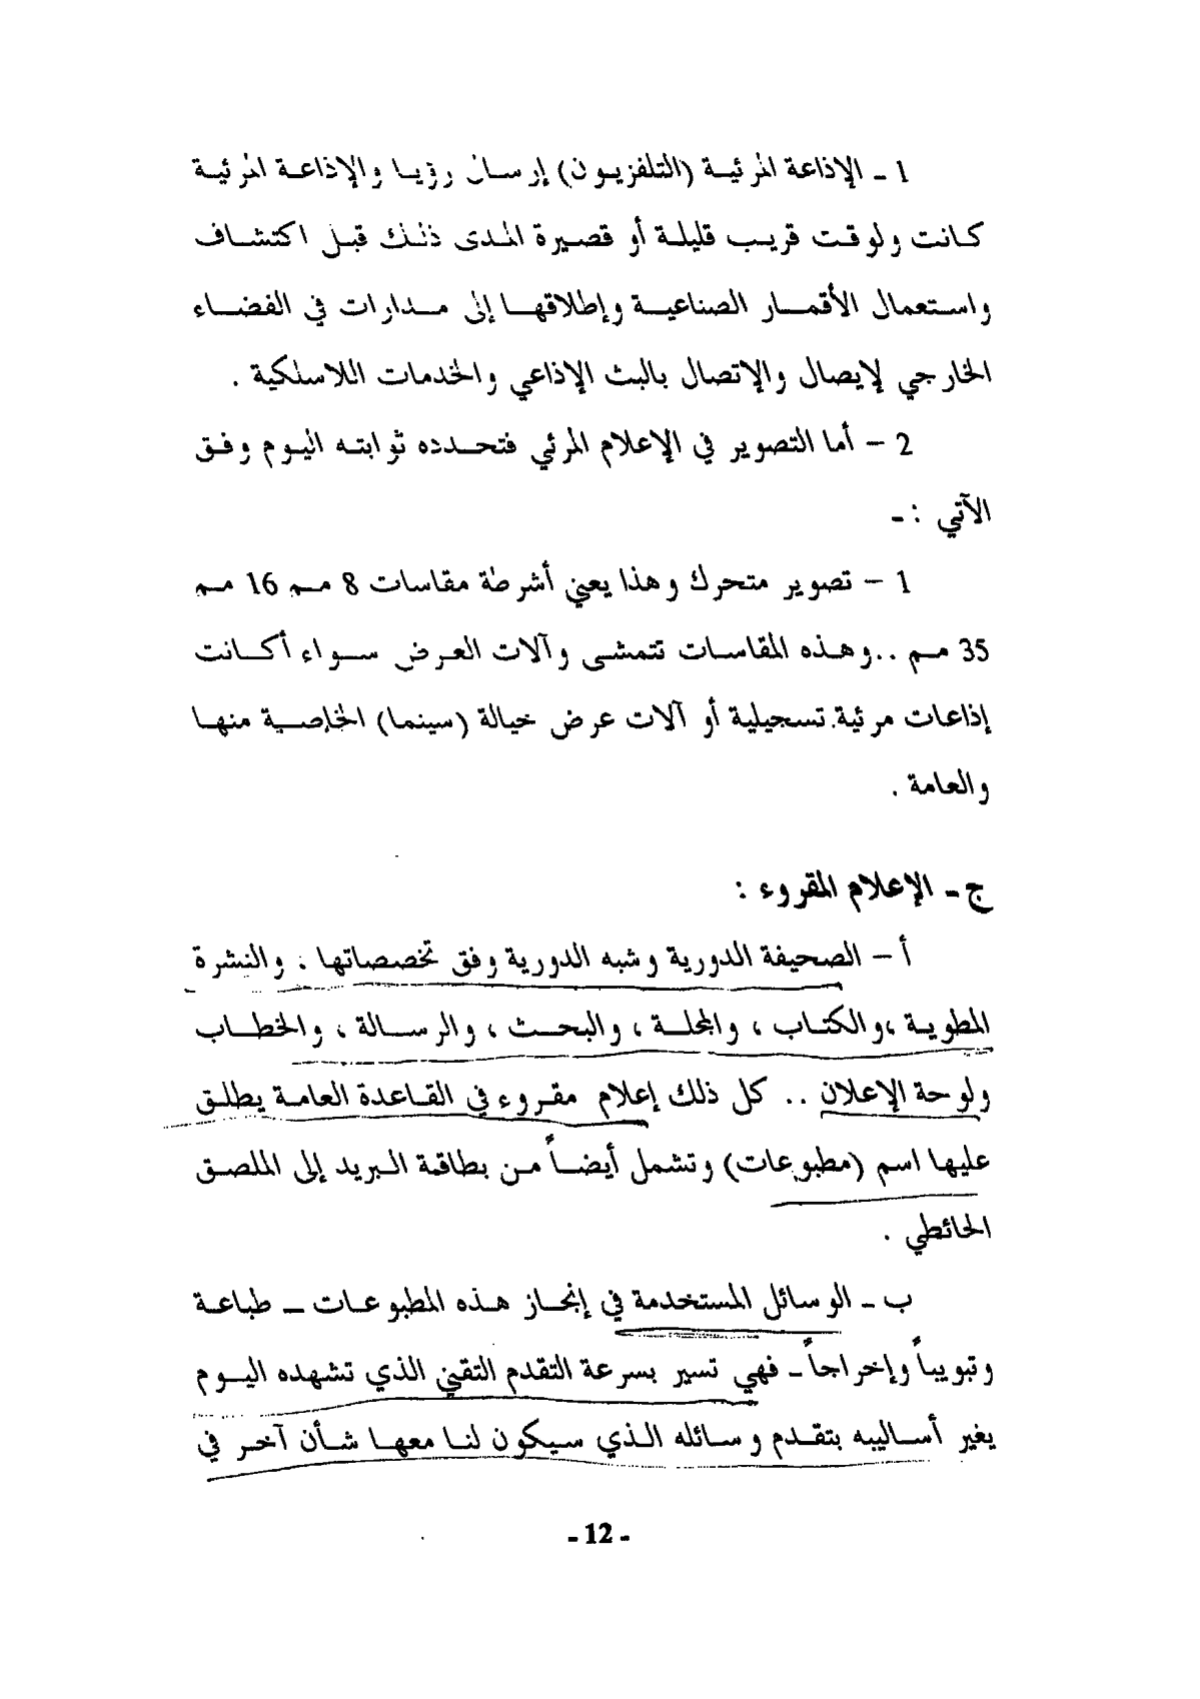 1 ـ الإذاعة المرئية (التلفزيون) إرسال رؤيا والإذاعة المرئية
كانت ولوقت قريب قليلة أو قصيرة المدى ذلك قبل اكتشاف
واستعمال الأقمار الصناعية وإطلاقها إلى مدارات في الفضاء
الخارجي لإيصال والإتصال بالبث الإذاعي والخدمات اللاسلكية .
2 – أما التصوير في الإعلام المرئي فتحدده ثوابته اليوم وفق
الآتي : ـ
1 – تصوير متحرك وهذا يعني أشرطة مقاسات 8 مم 16 مم
35 مم ..وهذه المقاسات تتمشى وآلات العرض سواء أكانت
إذاعات مرئية تسجيلية أو آلات عرض خيالة (سينما) الخاصة منها
والعامة .
ج ـ الإعلام المقروء :
أ – الصحيفة الدورية وشبه الدورية وفق تخصصاتها . والنشرة
المطوية ،والكتاب ، والمجلة ، والبحث ، والرسالة ، والخطاب
ولوحة الإعلان .. كل ذلك إعلام مقروء في القاعدة العامة يطلق
عليها اسم (مطبوعات) وتشمل أيضاً من بطاقة البريد إلى الملصق
الحائطي .
ب ـ الوسائل المستخدمة في إنجاز هذه المطبوعات ـ طباعة
وتبويباً وإخراجاً ـ فهي تسير بسرعة التقدم التقني الذي تشهده اليوم
يغير أساليبه بتقدم وسائله الذي سيكون لنا معها شأن آخر في
- 12 -